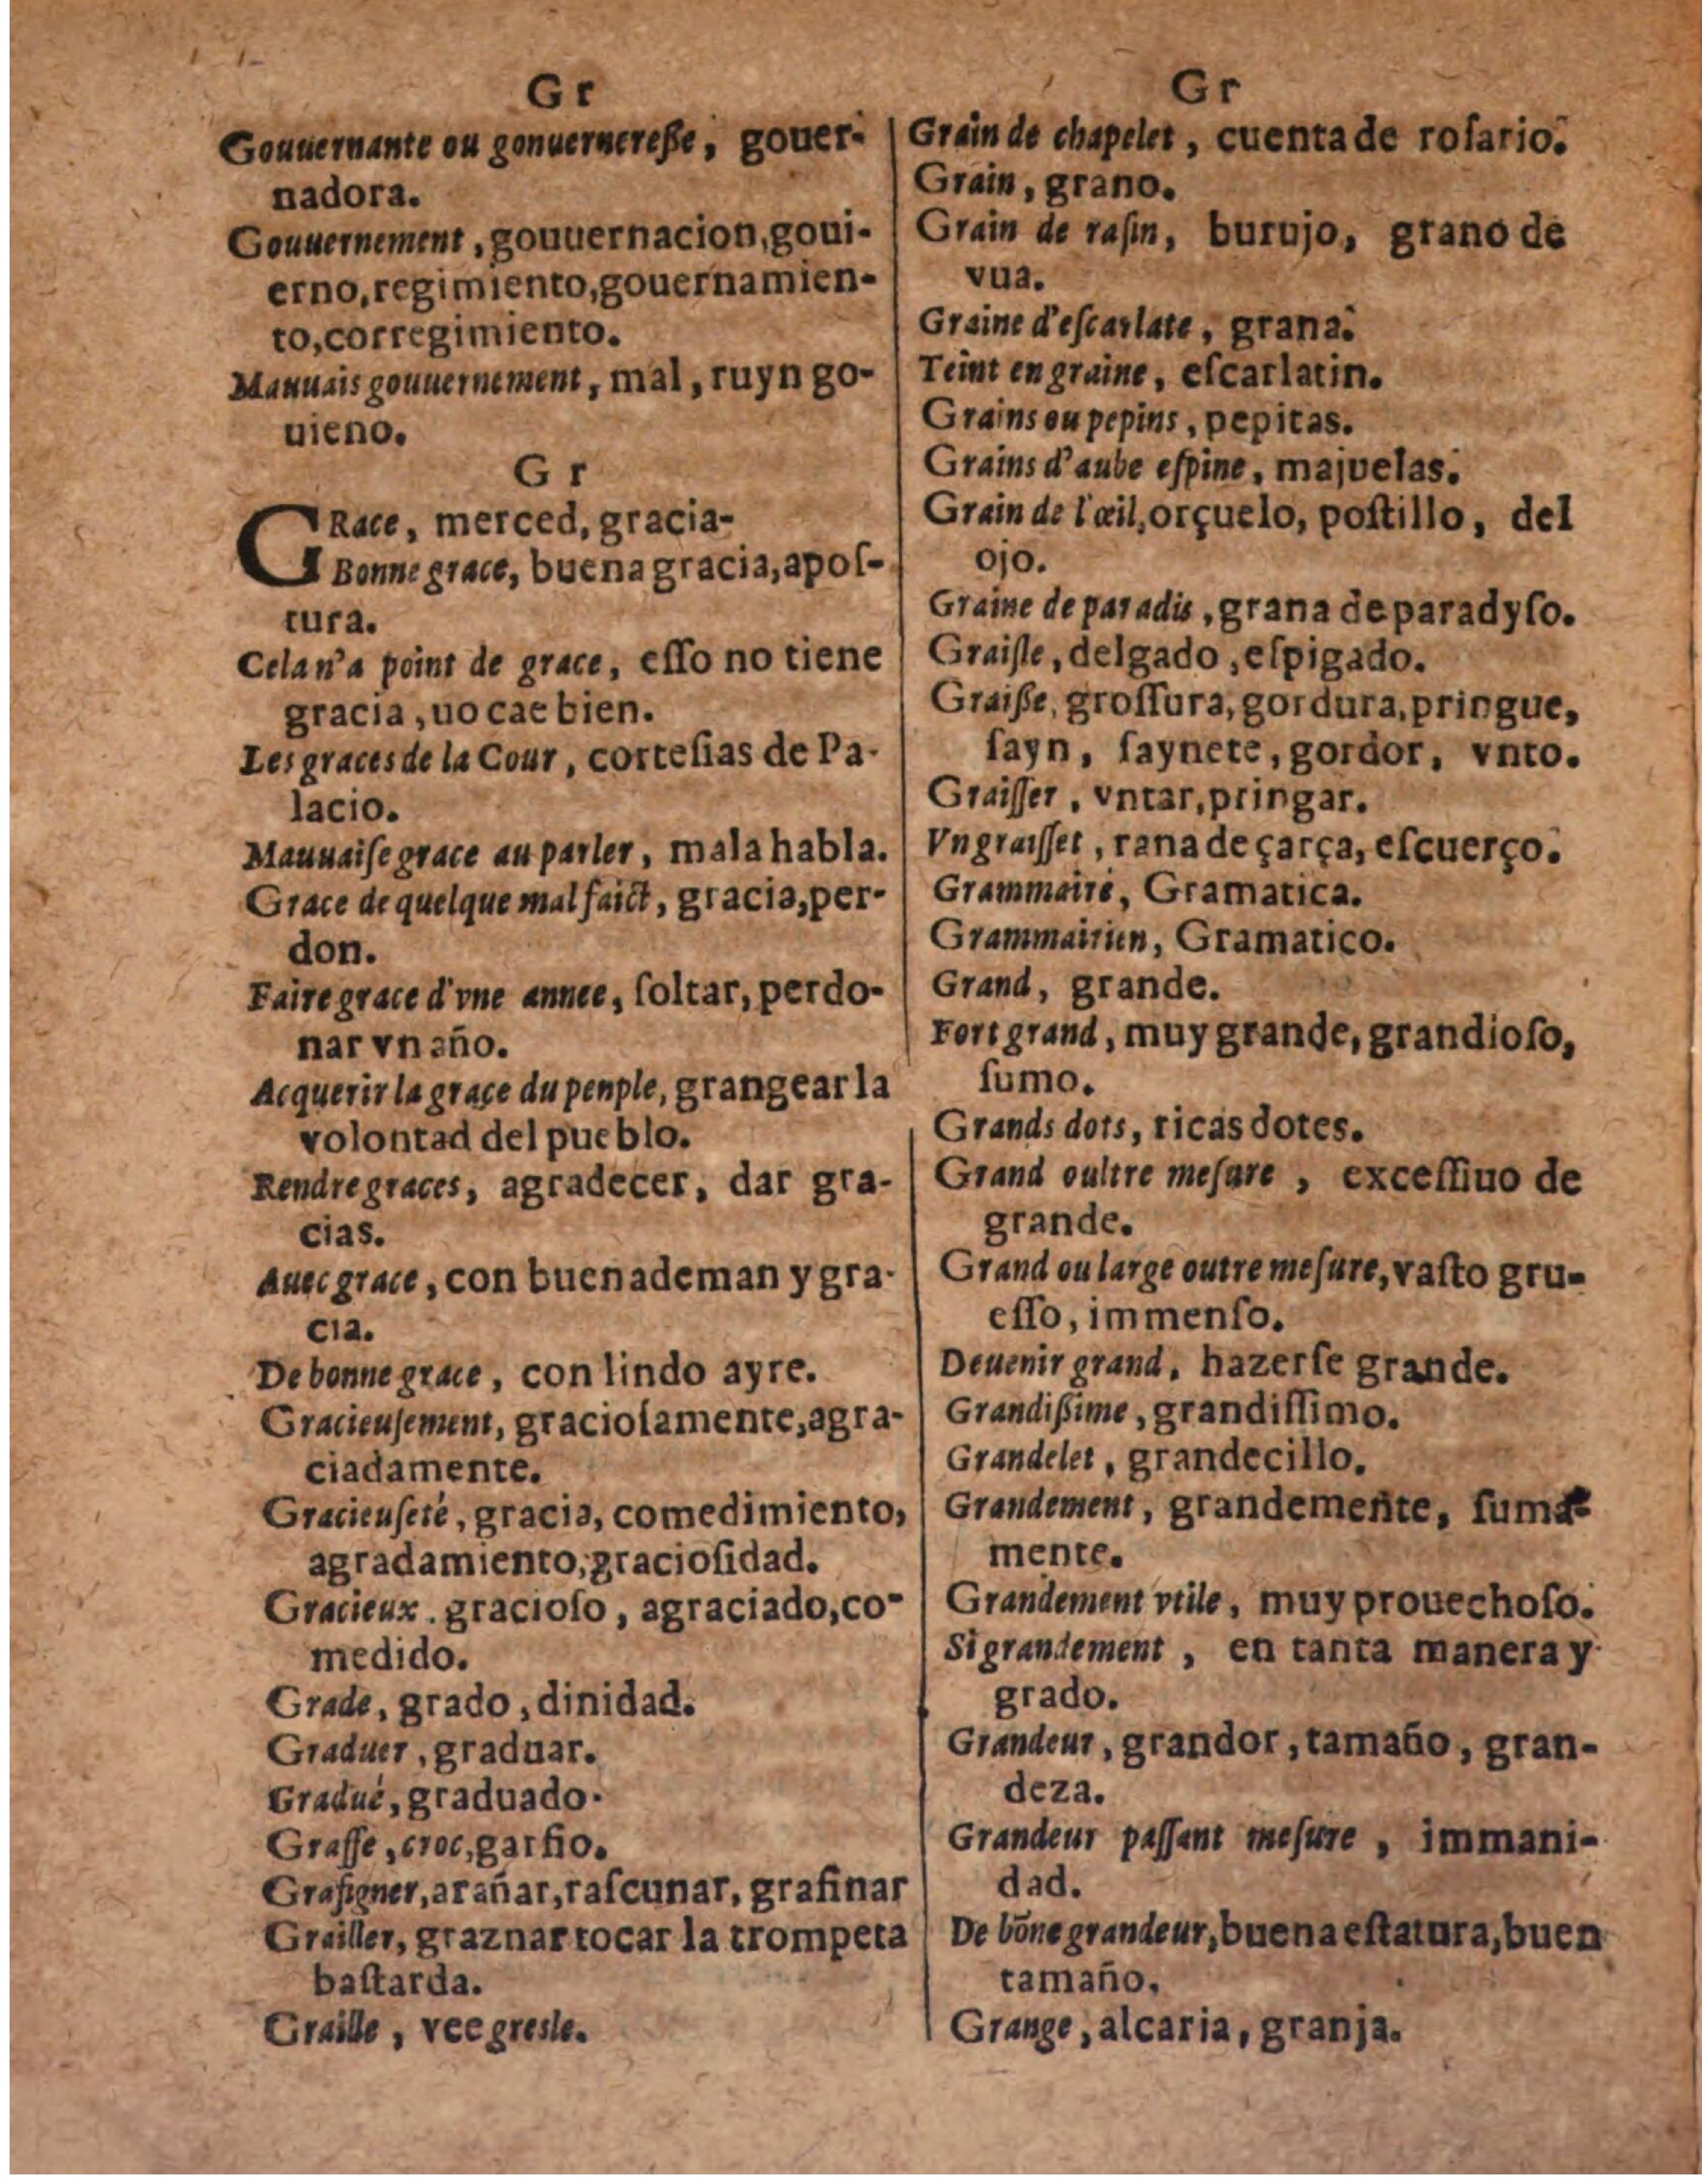 Gr
Gouuernante ou gonuernereße, gouer-
nadora.
Gouuernement, gouuernacion, goui-
erno, regimiento, gouernamien-
to, corregimiento.
Mauuais gouuernement, mal, ruyn go-
uieno.
Gr
GRace, merced, gracia-
Bonne grace, buena gracia, apoſ-
tura.
Cela n'a point de grace, eſſo no tiene
gracia, uo cae bien.
Les graces de la Cour, corteſias de Pa-
lacio.
Mauuaiſe grace au parler, mala habla.
Grace de quelque mal faict, gracia, per-
don.
Faire grace d'vne annee, ſoltar, perdo-
nar vn año.
Acquerir la graçe du penple, grangear la
volontad del pueblo.
Rendre graces, agradecer, dar gra-
cias.
Auec grace, con buen ademan y gra-
cia.
De bonne grace, con lindo ayre.
Gracieuſement, gracioſamente, agra-
ciadamente.
Gracieuſeté, gracia, comedimiento,
agradamiento, gracioſidad.
Gracieux. gracioſo, agraciado, co-
medido.
Grade, grado, dinidad.
Graduer, graduar.
Gradué, graduado.
Graffe, croc, garfio.
Grafigner, arañar, raſcunar, grafinar
Grailler, graznar tocar la trompeta
baſtarda.
Graille, vee gresle.
Gr
Grain de chapelet, cuenta de roſario.
Grain, grano.
Grain de raſin, burujo, grano de
vua.
Graine d'eſcarlate, grana.
Teint en graine, eſcarlatin.
Grains ou pepins, pepitas.
Grains d'aube eſpine, majuelas.
Grain de l'œil, orçuelo, poſtillo, del
ojo.
Graine de paradis, grana de paradyſo.
Graiſle, delgado, eſpigado.
Graiße, groſſura, gordura, pringue,
ſayn, ſaynete, gordor, vnto.
Graiſſer, vntar, pringar.
Vn graiſſet, rana de çarça, eſcuerço.
Grammaire, Gramatica.
Grammairien, Gramatico.
Grand, grande.
Fort grand, muy grande, grandioſo,
ſumo.
Grands dots, ricas dotes.
Grand oultre meſure, exceſſiuo de
grande.
Grand ou large outre meſure, vaſto gru-
eſſo, immenſo.
Deuenir grand, hazerſe grande.
Grandißime, grandiſſimo.
Grandelet, grandecillo.
Grandement, grandemente, ſuma-
mente.
Grandement vtile, muy prouechoſo.
Si grandement, en tanta manera y
grado.
Grandeur, grandor, tamaño, gran-
deza.
Grandeur paſſant meſure, immani-
dad.
De bõne grandeur, buena eſtatura, buen
tamaño.
Grange, alcaria, granja.